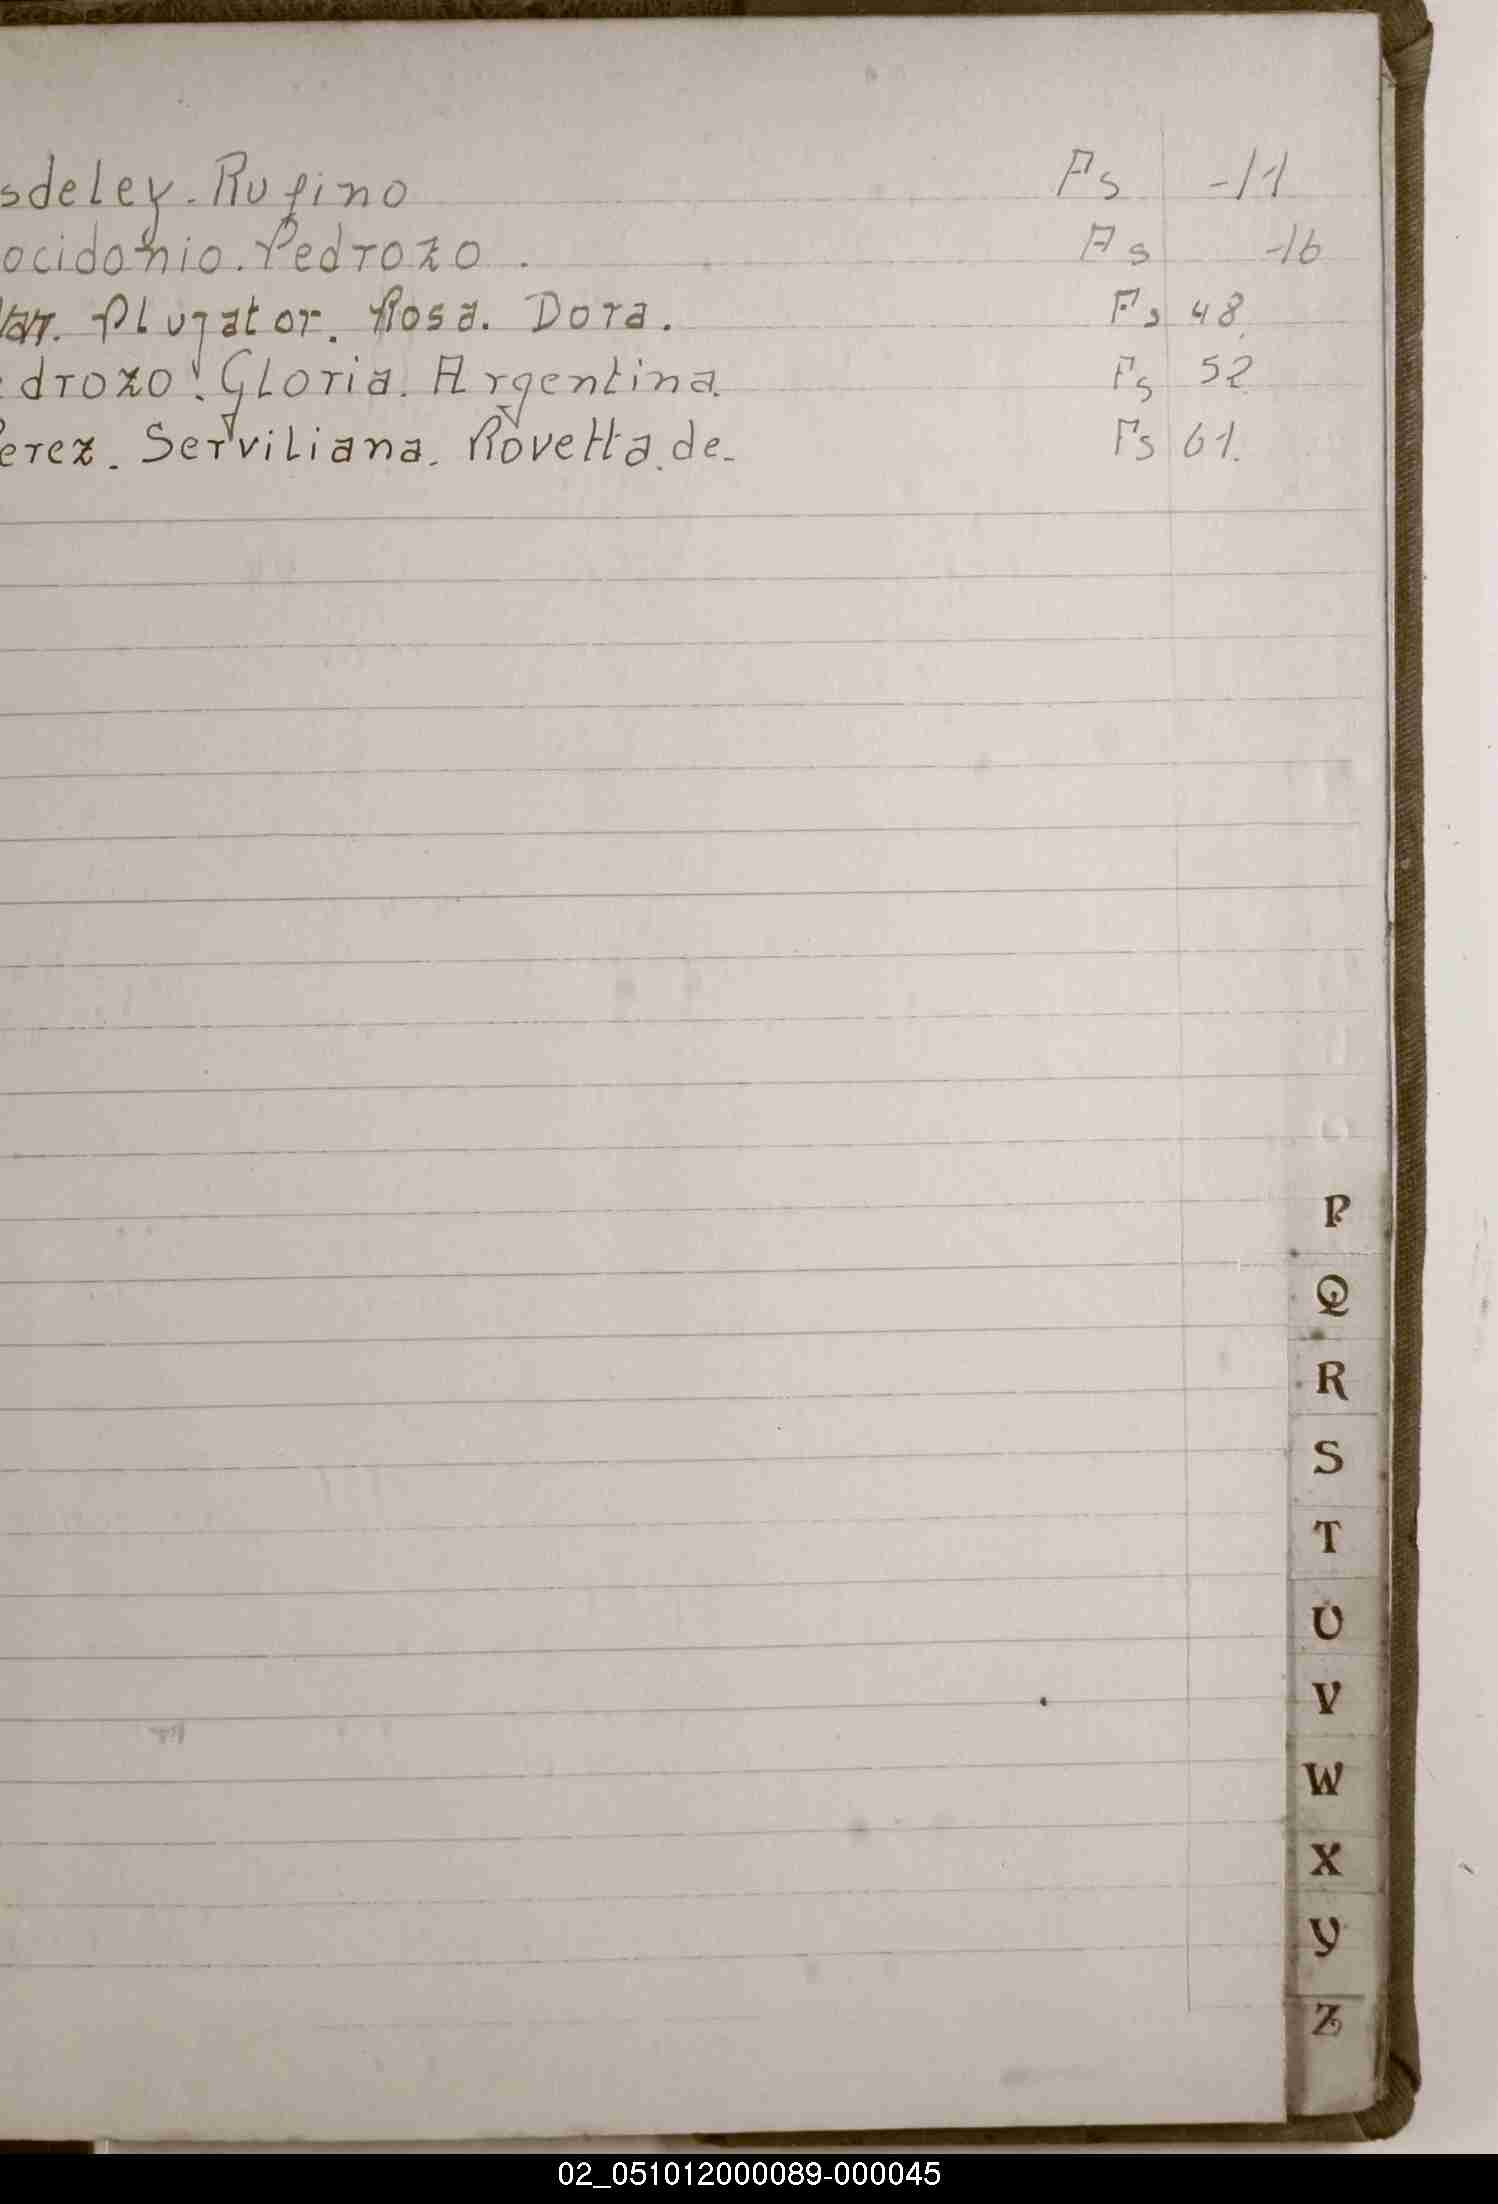 sdeley. Rufino Fs -11
ocidonio. Pedrozo. Fs -16
Plujator. Rosa. Dora. Fs 48.
drozo. Gloria. Argentina. Fs 52
Perez. Serviliana. Rovetta. de. Fs 61.
P
Q
R
S
T
U
V
W
X
Y
Z
02_051012000089-000045